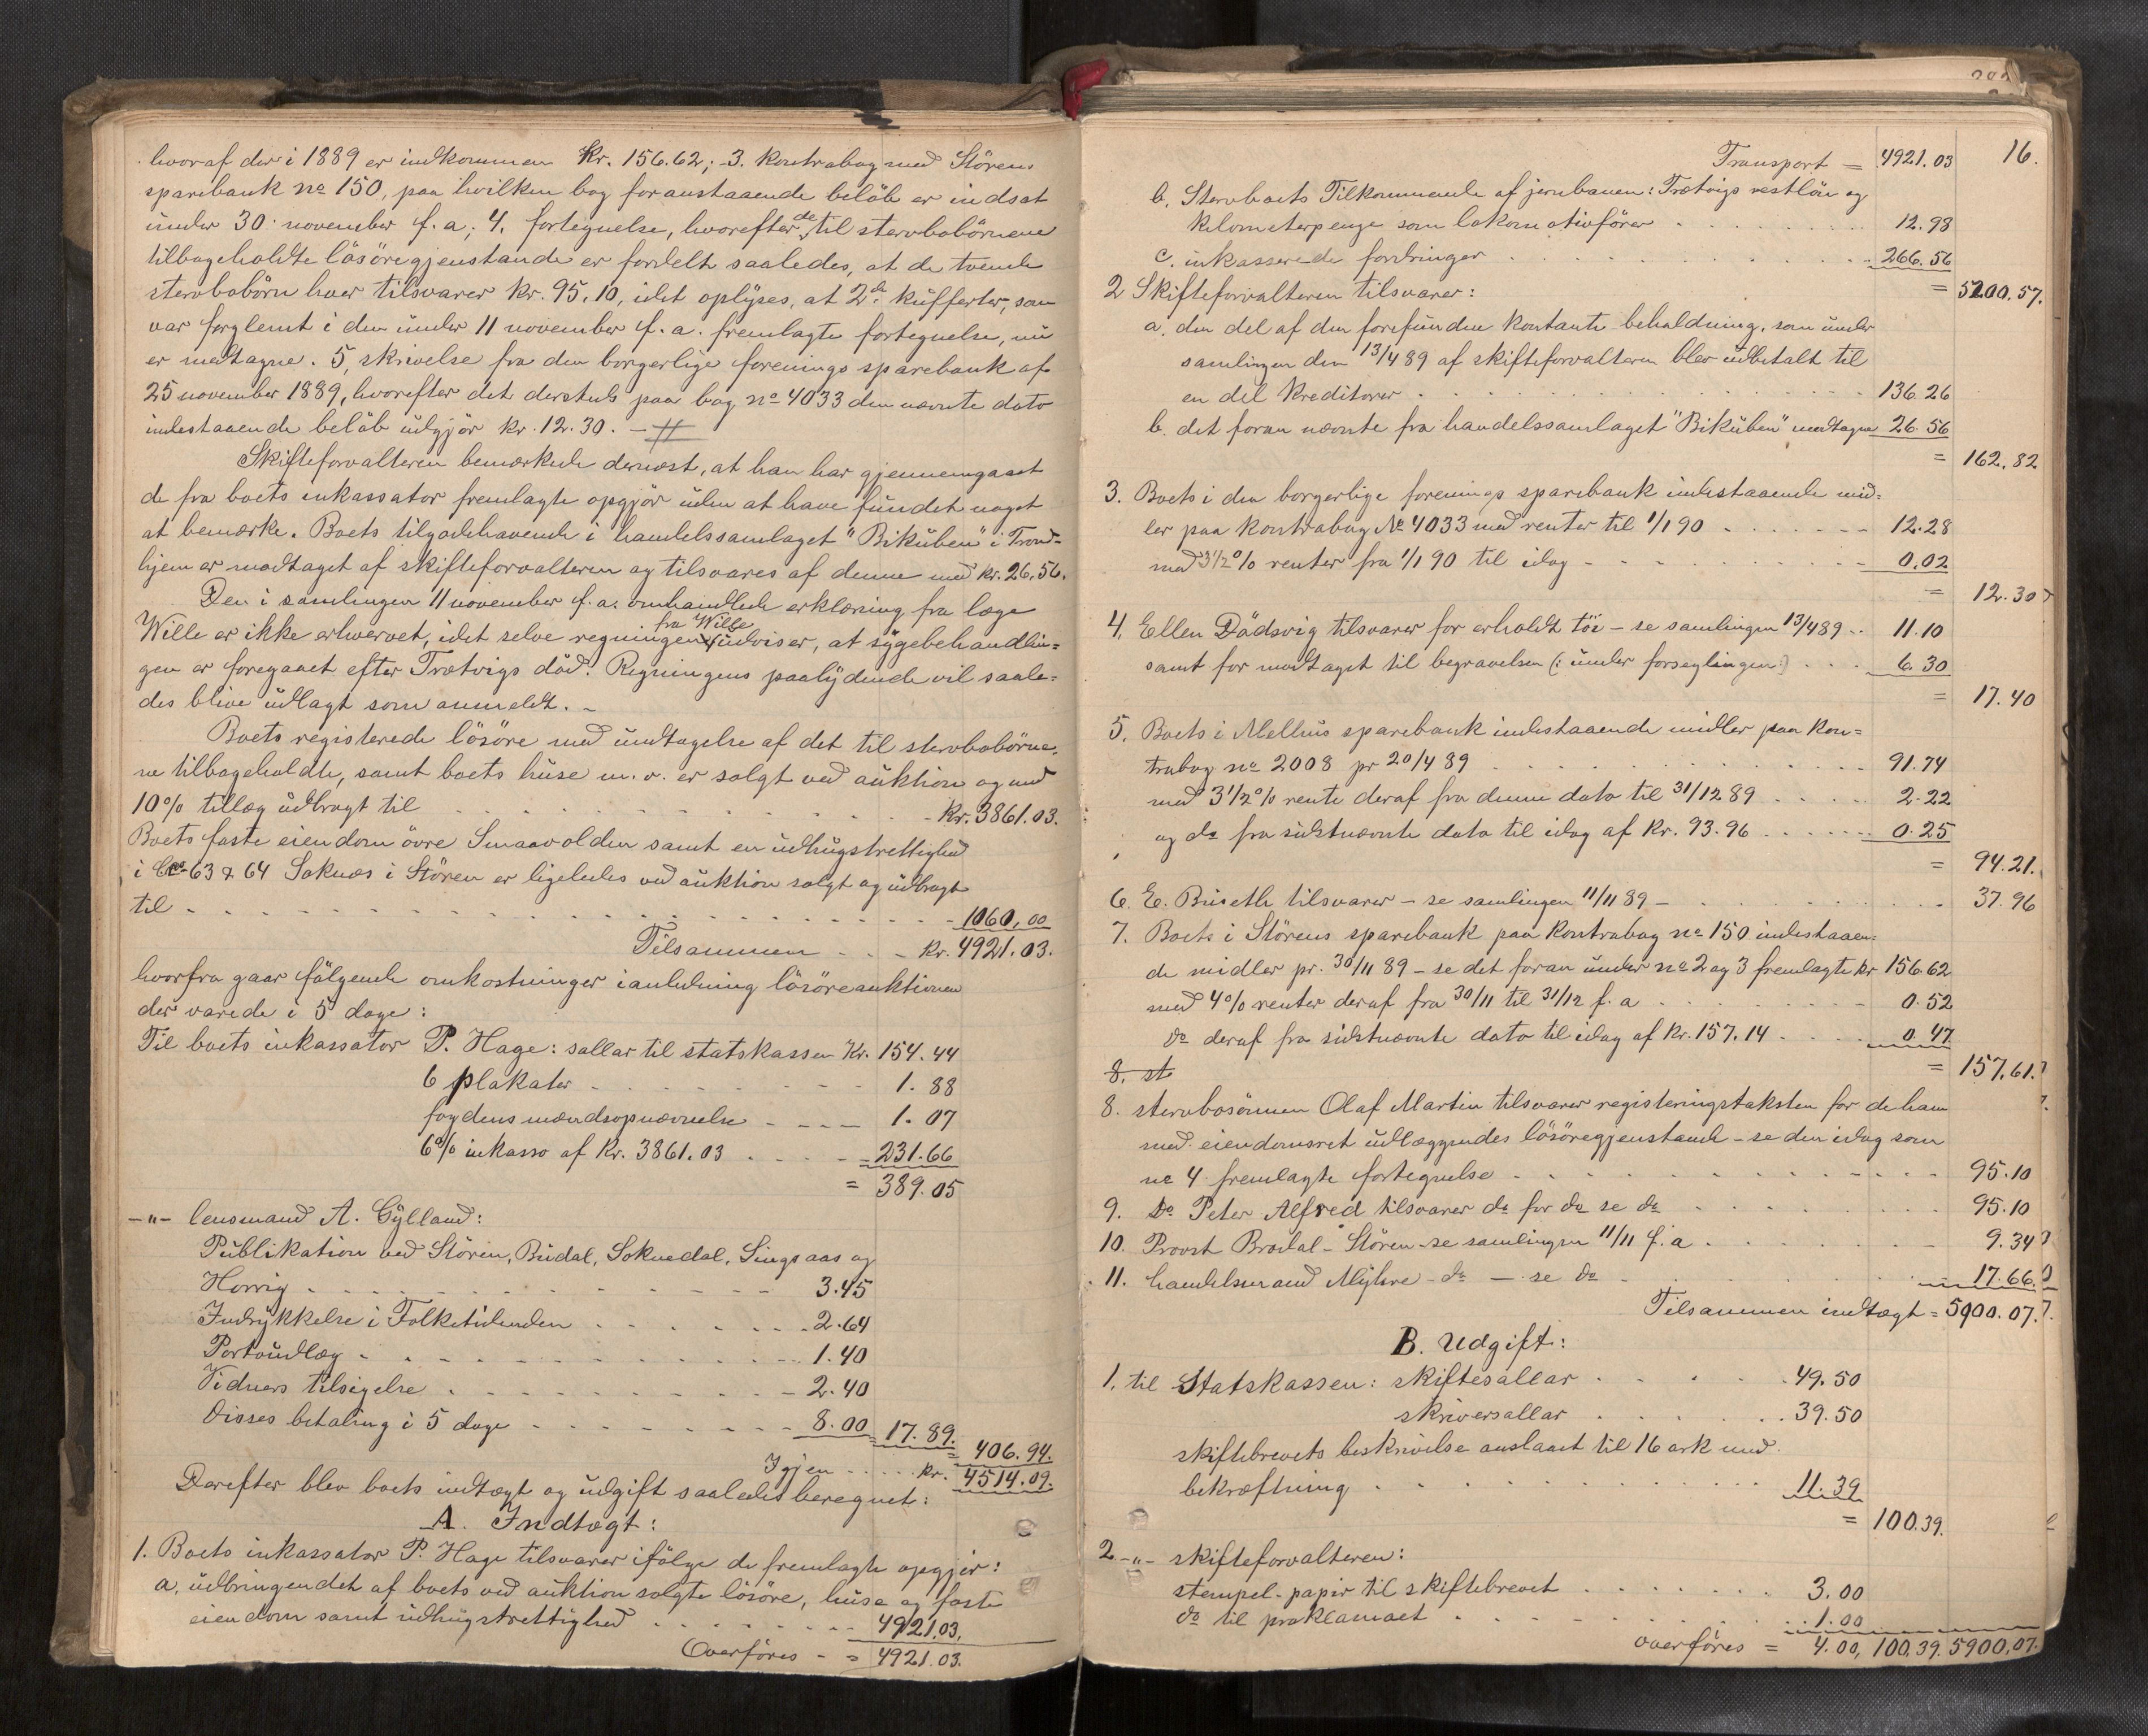 hvoraf der i 1889 er indkommen Kr. 156.62; 3. Kontrabog med Störens
sparebank No 150, paa hvilken bog foranstaaende belöb er indsat
under 30 november f.a; 4, fortegnelse, hvorefter de til stervbobörnene
tilbageholdte lösöregjenstande er fordelt saaledes, at de tvende
stervbobörn hver tilsvarer kr. 95.10, idet oplyses, at 2de kufferter, som
var forglemt i den under 11 november f.a. fremlagte fortegnelse, nu
er medtagne. 5, skrivelse fra den borgerlige forenings sparebank af
25 november 1889, hvorefter det dersteds paa bog No 4033 den nævnte dato
indestaaende belöb udgjör kr. 12.30. -
Skifteforvalteren bemærkede dernæst, at han har gjennemgaaet
de fra boets inkassator fremlagte opgjör uden at have fundet noget
at bemærke. Boets tilgodehavende i handelssamlaget "Bikuben" i Trond=
hjem er modtaget af skifteforvalteren og tilsvares af denne med kr. 26.56.
Den i samlingen 11 november f.a. omhandlede erklæring fra læge
Wille er ikke erhvervet, idet selve regningen fra Wille udviser, at sygebehandlin=
gen er foregaaet efter Trætvigs död. Regningens paalydende vil saale=
des blive udlagt som anmeldt. -
Boets registerede lösöre med undtagelse af det til stervbobörne=
ne tilbageholdte, samt boets huse m.v. er solgt ved auktion og med
10% tillæg udbragt til - Kr. 3861.03.
Boets faste eiendom övre Smaavolden samt en udhugstrettighed
i 63 & 64 Soknæs i Stören er ligeledes ved auktion solgt og udbragt
til - 1060.00
Tilsammen - Kr. 4921.03.
hvorfra gaar fölgende omkostninger i anledning lösöreauktionen
der varede i 5 dage:
Til boets inkassator P. Hage: sallar til statskassen Kr. 154.44
6 plakater - 1.88
fogdens mændsopnævnelse - 1.07
6% inkasso af Kr. 3861.03 - 231.66
= 389.05
-"- lensmand A. Gylland:
Publikation ved Stören, Budal, Soknedal, Singsaas og
Horrig - 3.45
Indrykkelse i Folketidenden - 2.64
Portoudlæg - 1.40
Vidners tilsigelse - 2.40
Disses betaling i 5 dage - 8.00 17.89.
= 406.94.
Igjen - Kr. 4514.09.
Derefter blev boets indtægt og udgift saaledes beregnet:
A. Indtægt:
1. Boets inkassator P. Hage tilsvarer ifölge de fremlagte opgjör:
a, udbringendet af boets ved auktion solgte lösöre, huse og faste
eiendom samt udhugstrettighed - 4921.03.
Overföres - = 4921.03.
16.
Transport = 4921.03
b. Stervboets Tilkommende af jernbanen: Trætvigs restlön og
kilometerpenge som lokomotivförer - 12.98
c. inkasserede fordringer - 266.56
= 5200.57.
2 Skifteforvalteren tilsvarer:
a, den del af den forefundne kontante beholdning, som under
samlingen den 13/4 89 af skifteforvalteren blev udbetalt til
en del kreditorer - 136.26
b. det foran nævnte fra handelssamlaget "Bikuben" modtagne 26.56
= 162.82
3. Boets i den borgerlige forenings sparebank indestaaende mid=
ler paa kontrabog No 4033 med renter til 1/1 90 - 12.28
med 3 1/2 % renter fra 1/1 90 til idag - 0.02
= 12.30
4, Ellen Dödsvig tilsvarer for erholdt töi - se samlingen 13/4 89 - 11.10
samt for modtaget til begravelsen (: under forseglingen:) - 6.30
= 17.40
5, Boets i Melhus sparebank indestaaende midler paa kon=
trabog No 2008 pr 20/4 89 - 91.74
med 3 1/2 % rente deraf fra denne dato til 31/12 89 - 2.22
og do fra sidstnævnte dato til idag af Kr. 93.96 - 0.25
= 94.21.
6. E. Bruseth tilsvarer - se samlingen 11/11 89 - 37.96
7. Boets i Störens sparebank paa kontrabog No 150 indestaaen=
de midler pr. 30/11 89 - se det foran under No 2 og 3 fremlagte kr 156.62
med 4% renter deraf fra 30/11 til 31/12 f.a - 0.52
do deraf fra sidstnævnte dato til idag af Kr. 157.14 - 0.47
8. st = 157.61.
8. stervbosönnen Olaf Martin tilsvarer registeringstaksten for de ham
med eiendomsret udlæggendes lösöregjenstande - se den idag som
No 4 fremlagte fortegnelse - 95.10
9. Do Peter Alfred tilsvarer do for do se do - 95.10
10. Provst Brodal - Stören - se samlingen 11/11 f.a - 9.34
11. handelsmand Myhre - do - se do - 17.66.
Tilsammen indtægt = 5900.07.
B. Udgift:
1, til Statskassen: skiftesallar - 49.50
skriversallar - 39.50
skiftebrevets beskrivelse anslaaet til 16 ark med
bekræftning - 11.39
= 100.39.
2 -"- skifteforvalteren:
stempel-papir til skiftebrevet - 3.00
do til proklamaet - 1.00
overföres = 4.00, 100.39. 5900.07.